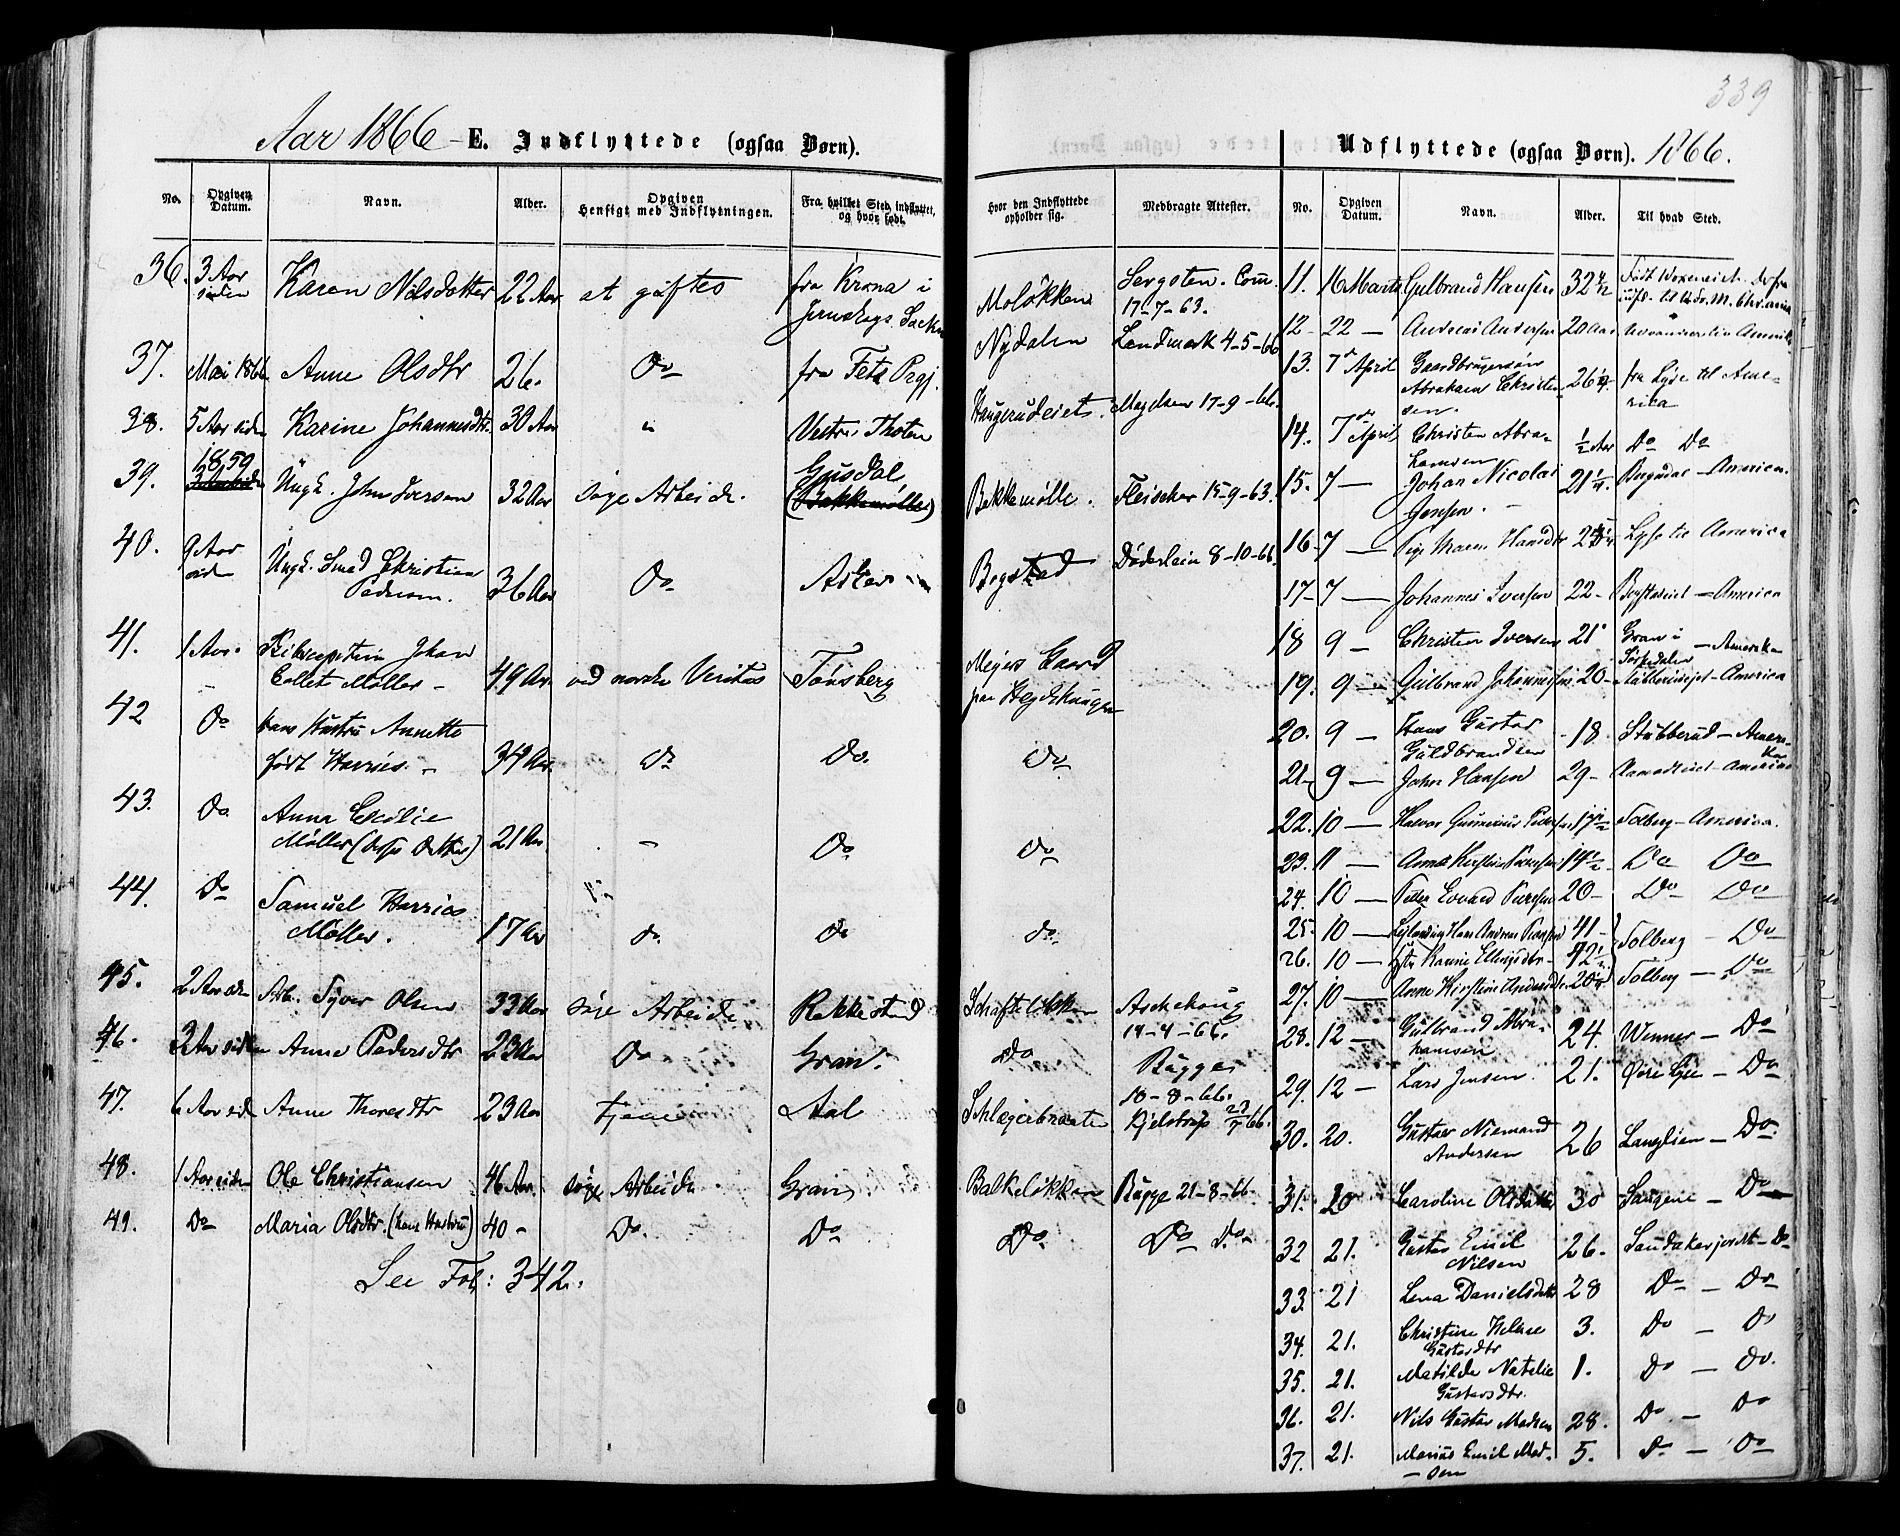 339
Aar 1866 E. Indflyttede (ogsaa Børn).
No. Opgiven Datum. Navn. Alder. Opgiven Hensigt med Indflytningen. Fra hvilket Sted indflyttet, og hvor født.
Hvor den Indflyttede opholder sig. Medbragte Attester.
36. 3 Aar siden Karen Nilsdatter 22 Aar at giftes fra Krona i Moløkken Comm. 17-7-63.
37. Mai 1866 Anne Olsdtr 26. Do fra Fets Prgj. Nydalen Landmark 4-5-66
38. 5 Aar siden Karine Johannesdtr. 30 Aar " Vestre Thoten Haugerudeiet. 17-9-66.
39. 1859 Ungk. John Iversen 32 Aar søge Arbeide. Gusdal, (Bakkemøllen) Bakkemølle. Fleischer 15-9-63.
40. 9 Aar sid Ungk. Smed Christian Pedersen. 36 Aar Do Asker Bogstad Døderlein 8-10-66.
41. 1 Aar. Johan Collet Møller 49 Aar. ved norske Veritas Tønsberg Meyers Gaard paa Hegdehaugen
42 Do hans Hustru Annette født Harries. 34 Aar. Do Do. Do
43. Do. Anna Cecilie Møller 21 Aar. - Do Do
44. Do Samuel Harries Møller. 17 Aar do. Do do.
45. 2 Aar sid Arb. Syver Olsen 33 Aar søge Arbeide Rakkestad Schafteløkken Aschehoug 14-4-66.
46. 3 Aar siden Anne Pedersdtr 23 Aar Do Gran. Do Bugge 18-8-66.
47. 6 Aar sid Anne Thoresdtr 23 Aar tjene Aal Schlægerbraaten Kjelstrup 23/7 66.
48. 1 Aar siden Ole Christiansen 46 Aar. søge Arbeide Gran Balkeløkken Bugge 21-8-66
49. Do Maria Olsdtr. (hans Hustru) 40 - Do. Do Do Do Do
See Fol: 342.
Udflyttede (ogsaa Børn). 1866.
No. Opgiven Datum. Navn. Alder. Til hvad Sted.
11. 16 Marts Gulbrand Hansen 32
12 - 22 - Andreas Andersen 20 Aar
13. 7de April Gaardbrugersøn Abraham Christensen. 26 fra Lyse til Amerika
14. 7de April Christen Abrahamsen 1/2 Aar Do Do
15. 7 - Johan Nicolai Jensen. 21 - America.
16 - 7 - Pige Maren Hansdtr Lyse til America
17 - 7 - Johannes Iversen 22 - Bogstadeiet - America
18 9 - Christian Iversen 21 Gran i Sørkedalen - Amerika
19. 9 - Gulbrand Johannesen 20 - Stubberudeiet - America
20. 9 - Hans Gustav Guldbrandsen 18. Stubberud - Amerika
21 - 9 - Jakob Hansen 29 - Aamodteiet - America
22. 10 - Halvor Pedersen 17 1/2 Solberg - America.
23. 11 - Anne 14 1/2 Do Do
24. 10 - Peder Edvard 20 - Do Do
25 - 10 - Hans Andreas 41 - Solberg - Do
26. 10 - Karine Ellingsdtr - 42 1/2
27. 10 - Anne Kirstine Andersdtr 20 Solberg - Do
28. 12 - Gulbrand Abrahamsen 24. Winner - Do
29. 12 - Lars Jensen. 21. Øvre Lyse - Do
30. 20. Gustav Niemand Andersen 26 Langlien - Do
31. 20 Caroline Olsdatter 30 - Do
32 21. Gustav Emil Nilsen 26. Sandakerjordet - Do
33. 21 Lena Danielsdatter 28 Do - Do
34. 21. Christine Helene Gustavsdtr 3. Do - Do
35. 21. Matilde Natalie Gustavsdtr. 1. Do - Do.
36. 21. Nils Gustav Madsen 28. Do - Do
37. 21. Marius Emil Madsen 5. Do - Do